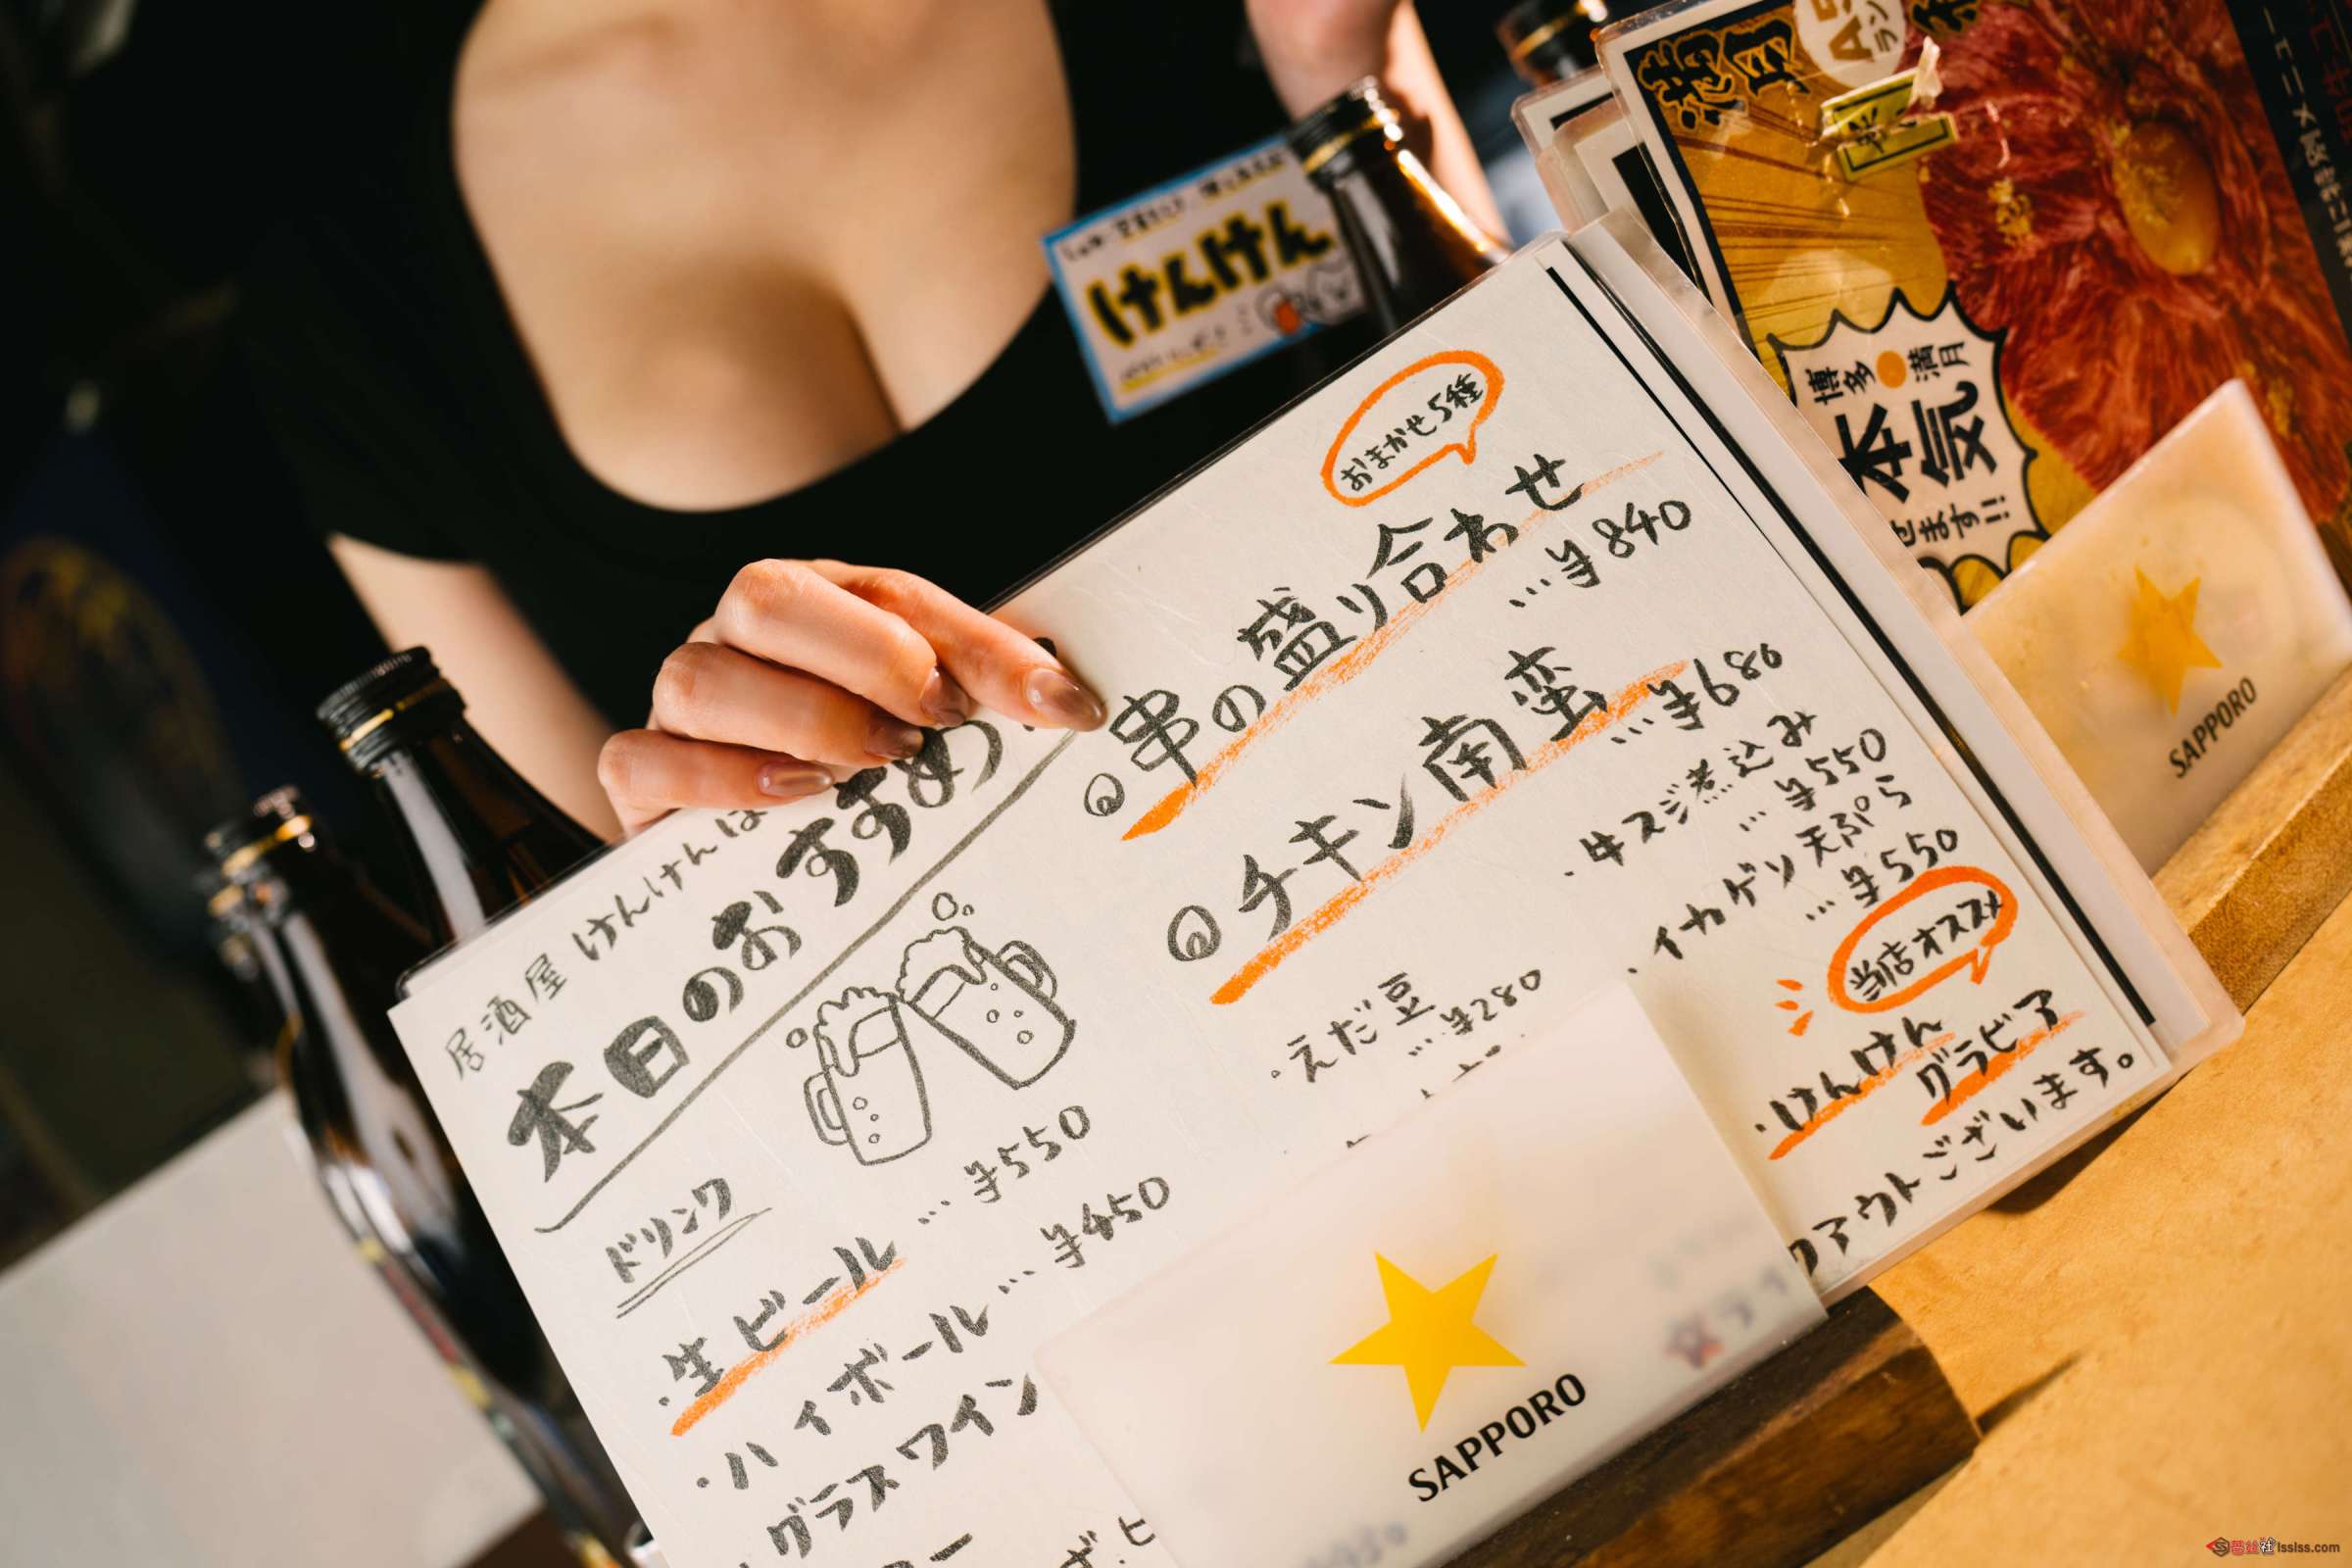 けんけん
居酒屋 けんけんは
本日のおすすめ
ドリンク
・生ビール … ¥550
・ハイボール … ¥450
グラスワイン
おまかせ5種
串の盛り合わせ
… ¥840
チキン南蛮
… ¥680
・えだ豆
… ¥280
・牛スジ煮込み
… ¥550
・イカゲソ天ぷら
… ¥550
当店オススメ
・けんけん
グラビア
アウトございます。
SAPPORO
博多 満月
本気
せます!!
SAPPORO
lsslss.com